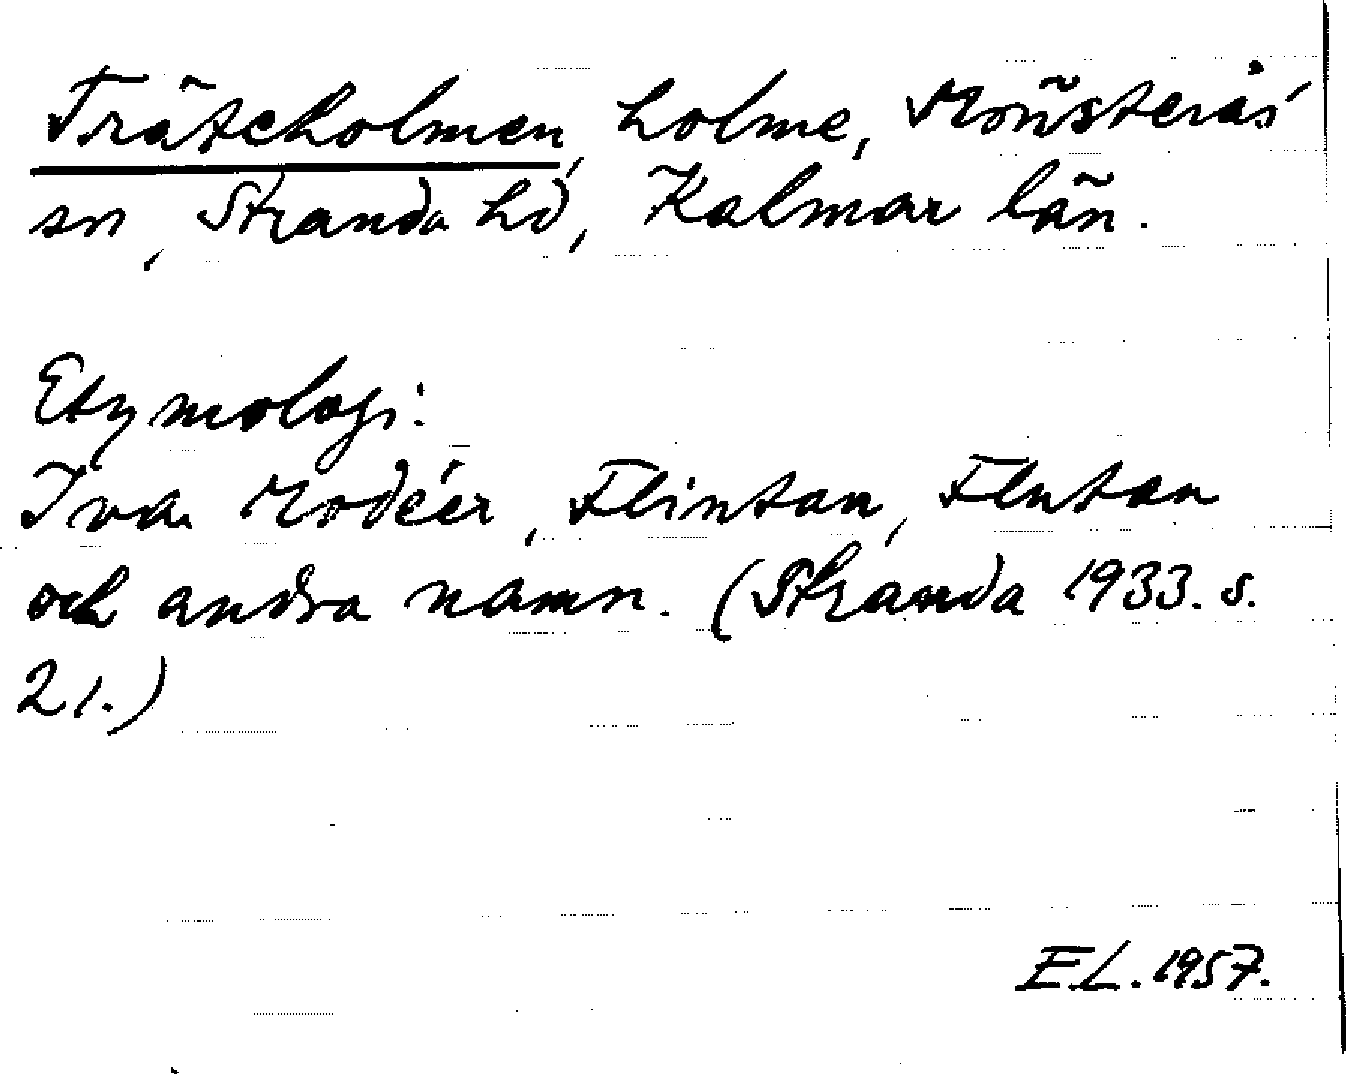 Träteholmen, holme, Mönsterås
sn, Stranda hd, Kalmar län.
Etymologi:
Ivar Modéer, Flintan, Fluten
och andra namn. (Stranda 1933. s.
21.)
E.L. 1957.